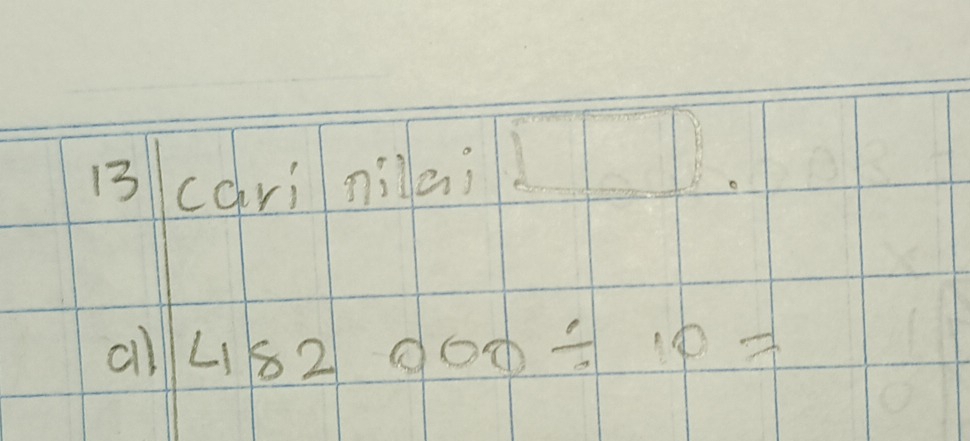 13 cari nilai .
a) 482 000 ÷ 10 =